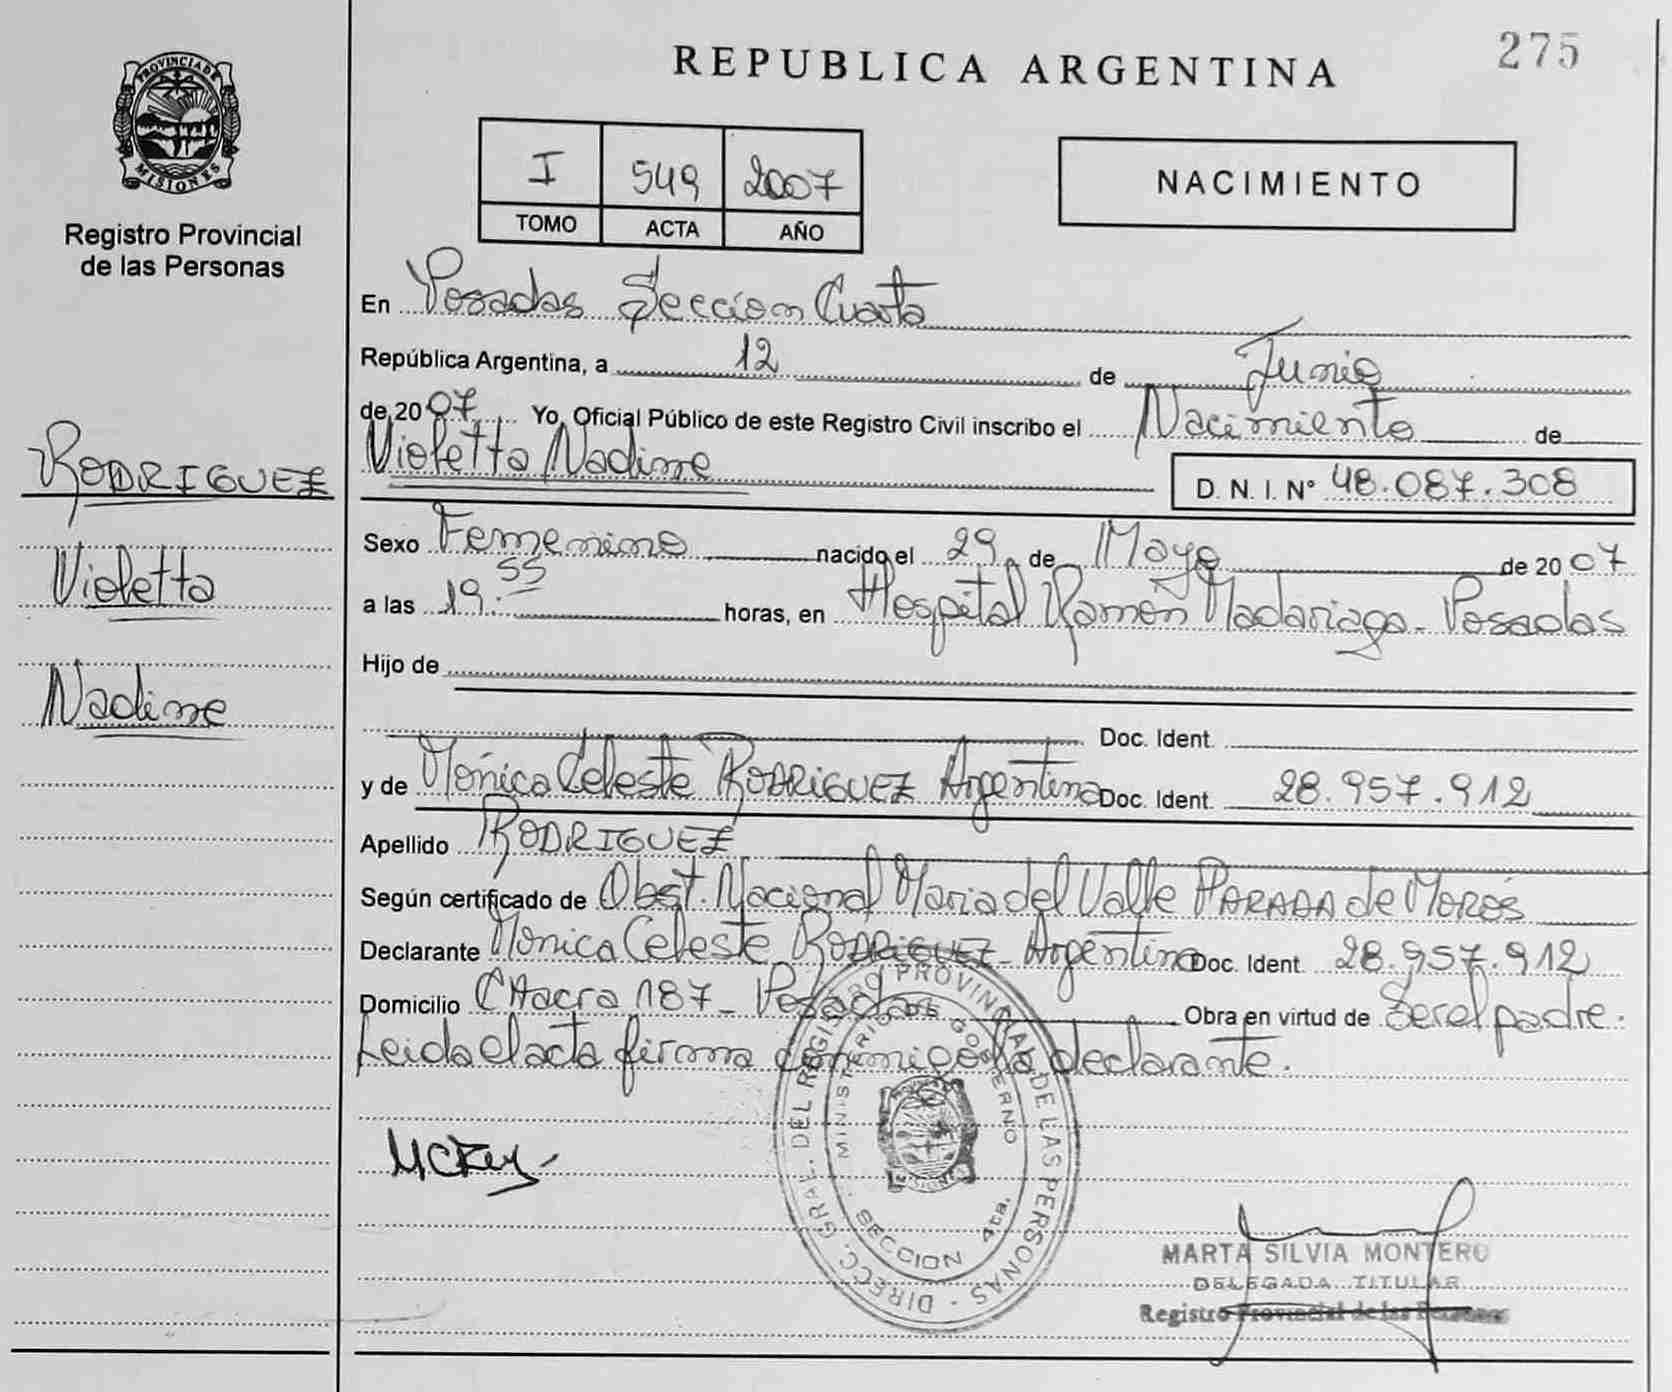 275
REPUBLICA ARGENTINA
PROVINCIA DE
MISIONES
Registro Provincial
de las Personas
I 549 2007
TOMO ACTA AÑO
NACIMIENTO
RODRIGUEZ
Violetta
Nadine
En Posadas Seccion Cuarta
República Argentina, a 12 de Junio
de 2007 Yo, Oficial Público de este Registro Civil inscribo el Nacimiento de
Violetta Nadine D. N. I. N° 48.087.308
Sexo Femenino nacido el 29 de Mayo de 2007
a las 19:55 horas, en Hospital Ramón Madariaga - Posadas
Hijo de
Doc. Ident.
y de Mónica Celeste RODRIGUEZ Argentina Doc. Ident. 28.957.912
Apellido RODRIGUEZ
Según certificado de Obst. Nacional Maria del Valle PARADA de MORÓS
Declarante Mónica Celeste RODRIGUEZ - Argentina Doc. Ident. 28.957.912
Domicilio CHacra 187 - Posadas Obra en virtud de Ser el padre.
Leida el acta firma conmigo la declarante.
DIRECC. GRAL. DEL REGISTRO PROVINCIAL DE LAS PERSONAS -
MINISTERIO DE GOBIERNO
MISIONES
SECCION 4ta.
MARTA SILVIA MONTERO
DELEGADA TITULAR
Registro Provincial de las Personas